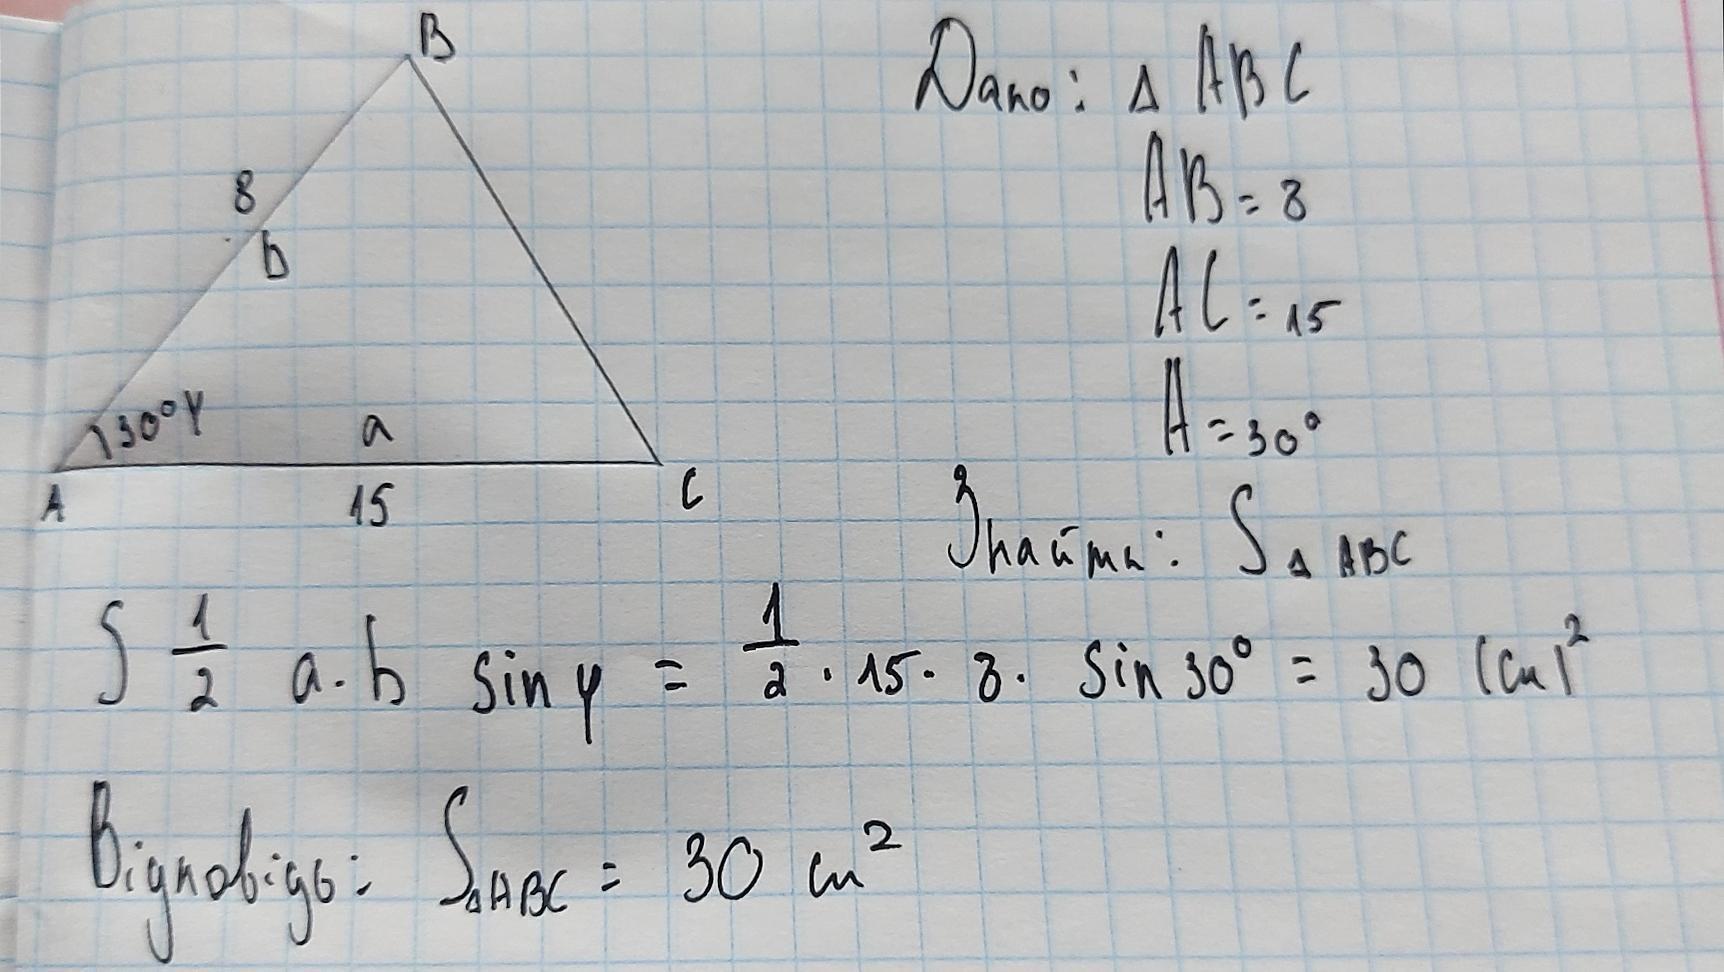 B
8
b
30° γ
a
A
15
C
Дано: Δ ABC
AB = 8
AC = 15
A = 30°
Знайти: S Δ ABC
S 1/2 a · b sin γ = 1/2 · 15 · 8 · sin 30° = 30 (см)²
Відповідь: S ΔABC = 30 см²